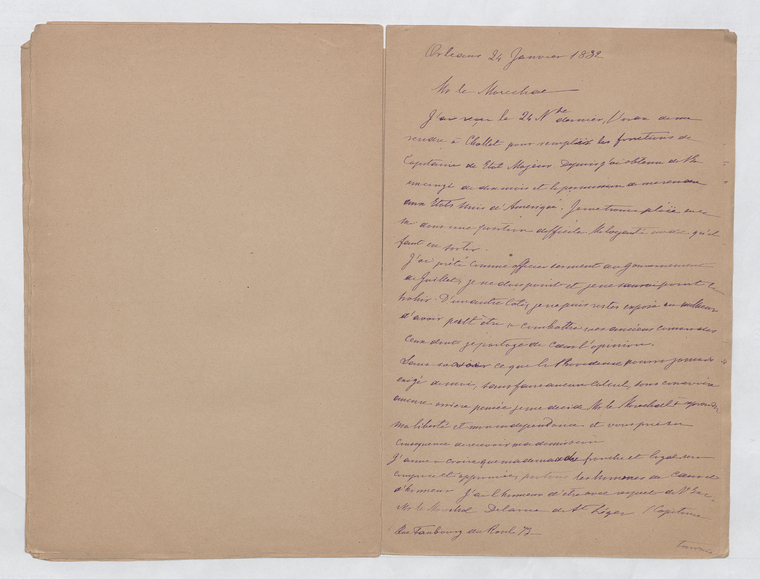 Orléans 24 Janvier 1832
Mr le Maréchal
J'ai reçu le 24 Nbre dernier, l'ordre de me
rendre à Chollet pour remplir les fonctions de
Capitaine de Etat Major. Depuis j'ai obtenu de VE
un congé de dix mois et la permission de me rendre
aux Etats Unis d'Amerique. Je me trouve placé
dans une position difficile qu'il
faut en sortir.
J'ai prêté comme officier serment au Gouvernement
de Juillet, je ne dois point et je ne saurai point le
trahir. D'un autre Coté, je ne puis rester exposé au malheur
d'avoir peut être à combattre mes anciens camarades
ceux dont je partage de cœur l'opinion.
Sans savoir ce que la Providence pourra jamais
exiger de moi, sans faire aucun calcul, sans conserver
aucune arrière pensée je me décide Mr le Maréchal à reprendre
ma liberté et mon indépendance et vous prie en
conséquence de recevoir ma démission
J'aime à croire que ma demande franche et loyale sera
comprise et appréciée par tous les hommes de cœur et
d'honneur J'ai l'honneur d'être avec respect de V Exc.
Mr le Maréchal Delarue de St Léger Capitaine
Rue Faubourg du Roule 73